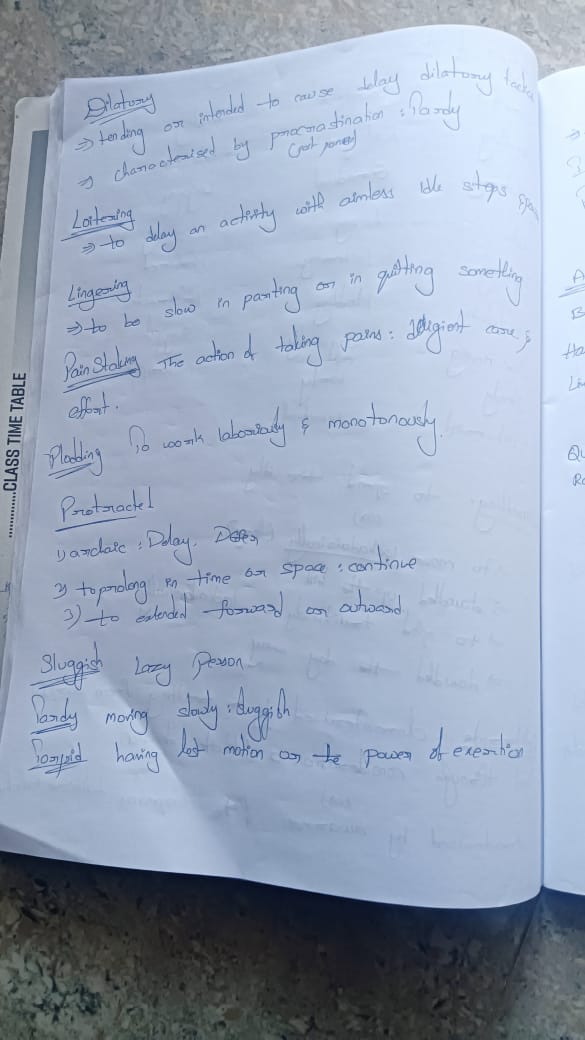 Dilatory
⇒ tending or intended to cause delay dilatory
⇒ characterised by procrastination : Tardy
(post poned)
Loitering
⇒ to delay an activity with aimless Idle stops
Lingering
⇒ to be slow in parting or in quitting something
Pain Staking The action of taking pains : diligient care &
effort.
Plodding To work laboriously & monotonously.
Protracted
1) archaic : Delay, Defer
2) to prolong in time or space : continue
3) to extended forward or outward
Sluggish Lazy Person
Tardy moving slowly : sluggish
Torpid having lost motion or the power of exertion
............CLASS TIME TABLE
A
B
Ha
Li
Qu
Ra